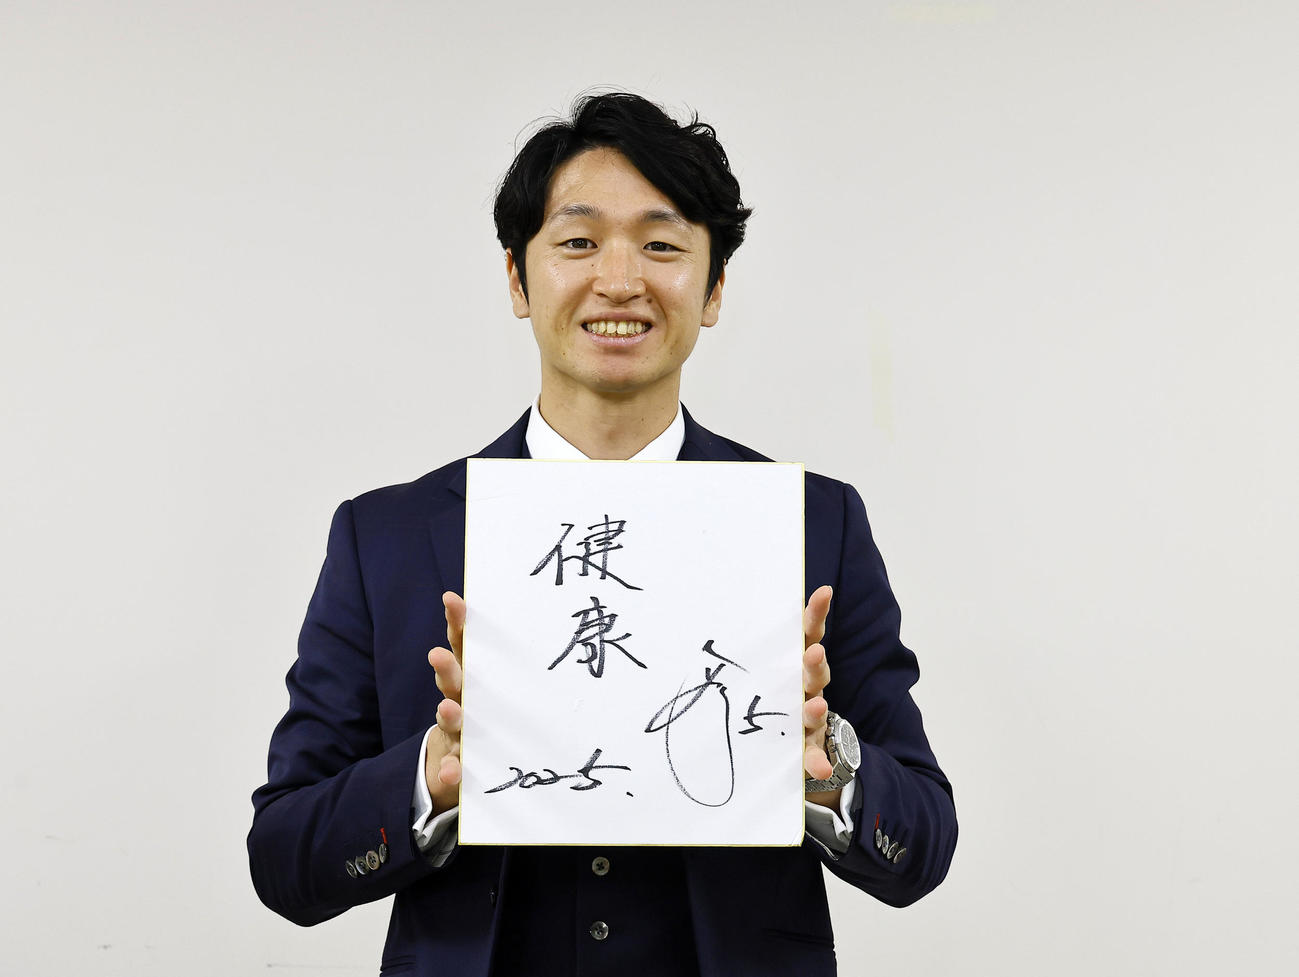 健
康
5.
2025.